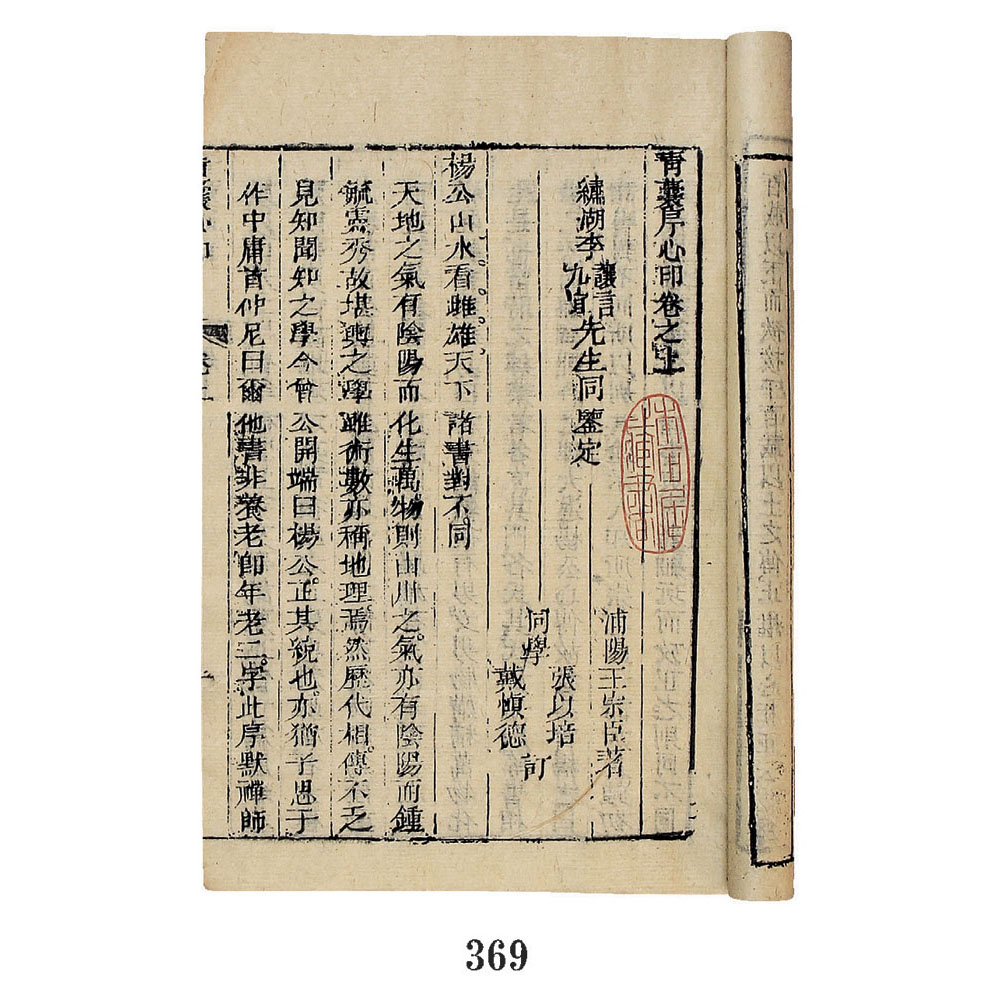 青囊序心印卷之上
繡湖李讓言九貞先生同鑒定
浦陽王宗臣著
同學張以培戴愼德訂
楊公山水看雌雄天下諸書對不同
天地之氣有陰陽而化生萬物則山川之氣亦有陰陽而鍾
毓靈秀故堪輿之學雖術數亦稱地理焉然歷代相傳不乏
見知聞知之學今曾公開端曰楊公正其統也亦猶子思于
作中庸首仲尼曰爾他書非養老卽年老二字此序默禪師
369